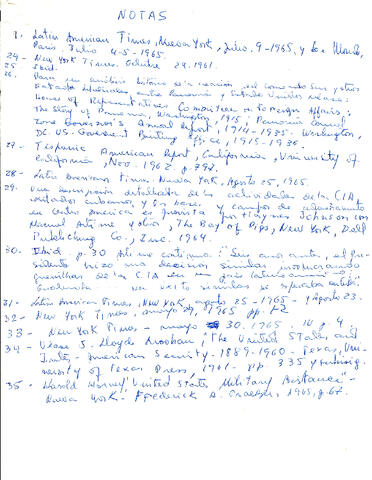 NOTAS
1. Latin American Times, Nueva York, Julio, 9-1965, y Le Monde,
París. Julio 4-5-1965.
24- New York Times. Octubre 29.1961.
25 Ibid.
26. Para un análisis histórico de la creación del comando Sur y otros
tratados bilaterales entre Panamá y Estados Unidos véanse:
House of Representatives Committee on Foreign Affairs;
The Story of Panama, Washington, 1915; Panamá Canal
Zone Governor's Annual Report, 1914-1935. Washington,
DC. US. Goverment Printing Office, 1915-1936.
27. Hispanic American Report, California, University of
California, Nov. 1962 p. 792.
28- Latin American Times, Nueva York, Agosto 25, 1965.
29. Una descripción detallada de las actividades de la CIA,
exiliados cubanos, y en bases y campos de adiestramiento
en Centro America es provista por Haynes Johnson con
Manuel Artime y otros, The Bay of Pigs, New York, Dell
Publishing Co., Inc. 1964.
30. Ibid. p. 30 Artime continua: "Seis años antes, el Pre-
sidente hizo decisiones similares,
guerrillas de la CIA en un país latinoamericano
Guatemala un éxito similar se esperaba
31- Latin American Times, New York, agosto 25-1965- y Agosto 23.
32- New York Times, mayo 1965 pp. 1-2
33- New York Times- mayo 30. 1965. IV p. 4.
34- J. Lloyd Mecham, "The United States and
Inter-American Security- 1889-1960- Texas, Uni-
versity of Texas Press, 1961- pp. 335 y subsig.
35- Harold Hovey "United States Military Assistance"-
Nueva York- Frederick A. Praeger, 1965, p. 67.